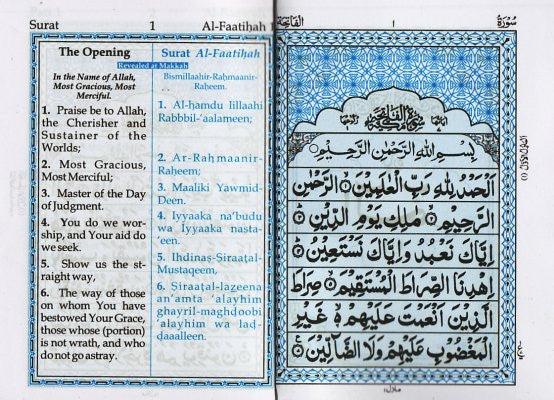 Surat 1 Al-Faatiḥah 1
The Opening
Revealed at Makkah
In the Name of Allah,
Most Gracious, Most
Merciful.
1. Praise be to Allah,
the Cherisher and
Sustainer of the
Worlds;
2. Most Gracious,
Most Merciful;
3. Master of the Day
of Judgment.
4. You do we wor-
ship, and Your aid do
we seek.
5. Show us the st-
raight way,
6. The way of those
on whom You have
bestowed Your Grace,
those whose (portion)
is not wrath, and who
do not go astray.
Surat Al-Faatiḥah
Bismillaahir-Raḥmaanir-
Raḥeem.
1. Al-ḥamdu lillaahi
Rabbbil-'aalameen;
2. Ar-Raḥmaanir-
Raḥeem;
3. Maaliki Yawmid-
Deen.
4. Iyyaaka na'budu
wa Iyyaaka nasta-
'een.
5. Ihdinaṣ-Ṣiraaṭal-
Mustaqeem,
6. Ṣiraaṭal-lazeena
an'amta 'alayhim
ghayril-maghḍoobi
'alayhim wa laḍ-
ḍaaalleen.
سُوْرَةُ ١ الْفَاتِحَة
بِسْمِ اللهِ الرَّحْمٰنِ الرَّحِيْمِ
اَلْحَمْدُ لِلّٰهِ رَبِّ الْعٰلَمِيْنَ ۝ الرَّحْمٰنِ
الرَّحِيْمِ ۝ مٰلِكِ يَوْمِ الدِّيْنِ ۝
اِيَّاكَ نَعْبُدُ وَاِيَّاكَ نَسْتَعِيْنُ ۝
اِهْدِنَا الصِّرَاطَ الْمُسْتَقِيْمَ ۝ صِرَاطَ
الَّذِيْنَ اَنْعَمْتَ عَلَيْهِمْ ۝ غَيْرِ
الْمَغْضُوْبِ عَلَيْهِمْ وَلَا الضَّآلِّيْنَ ۝